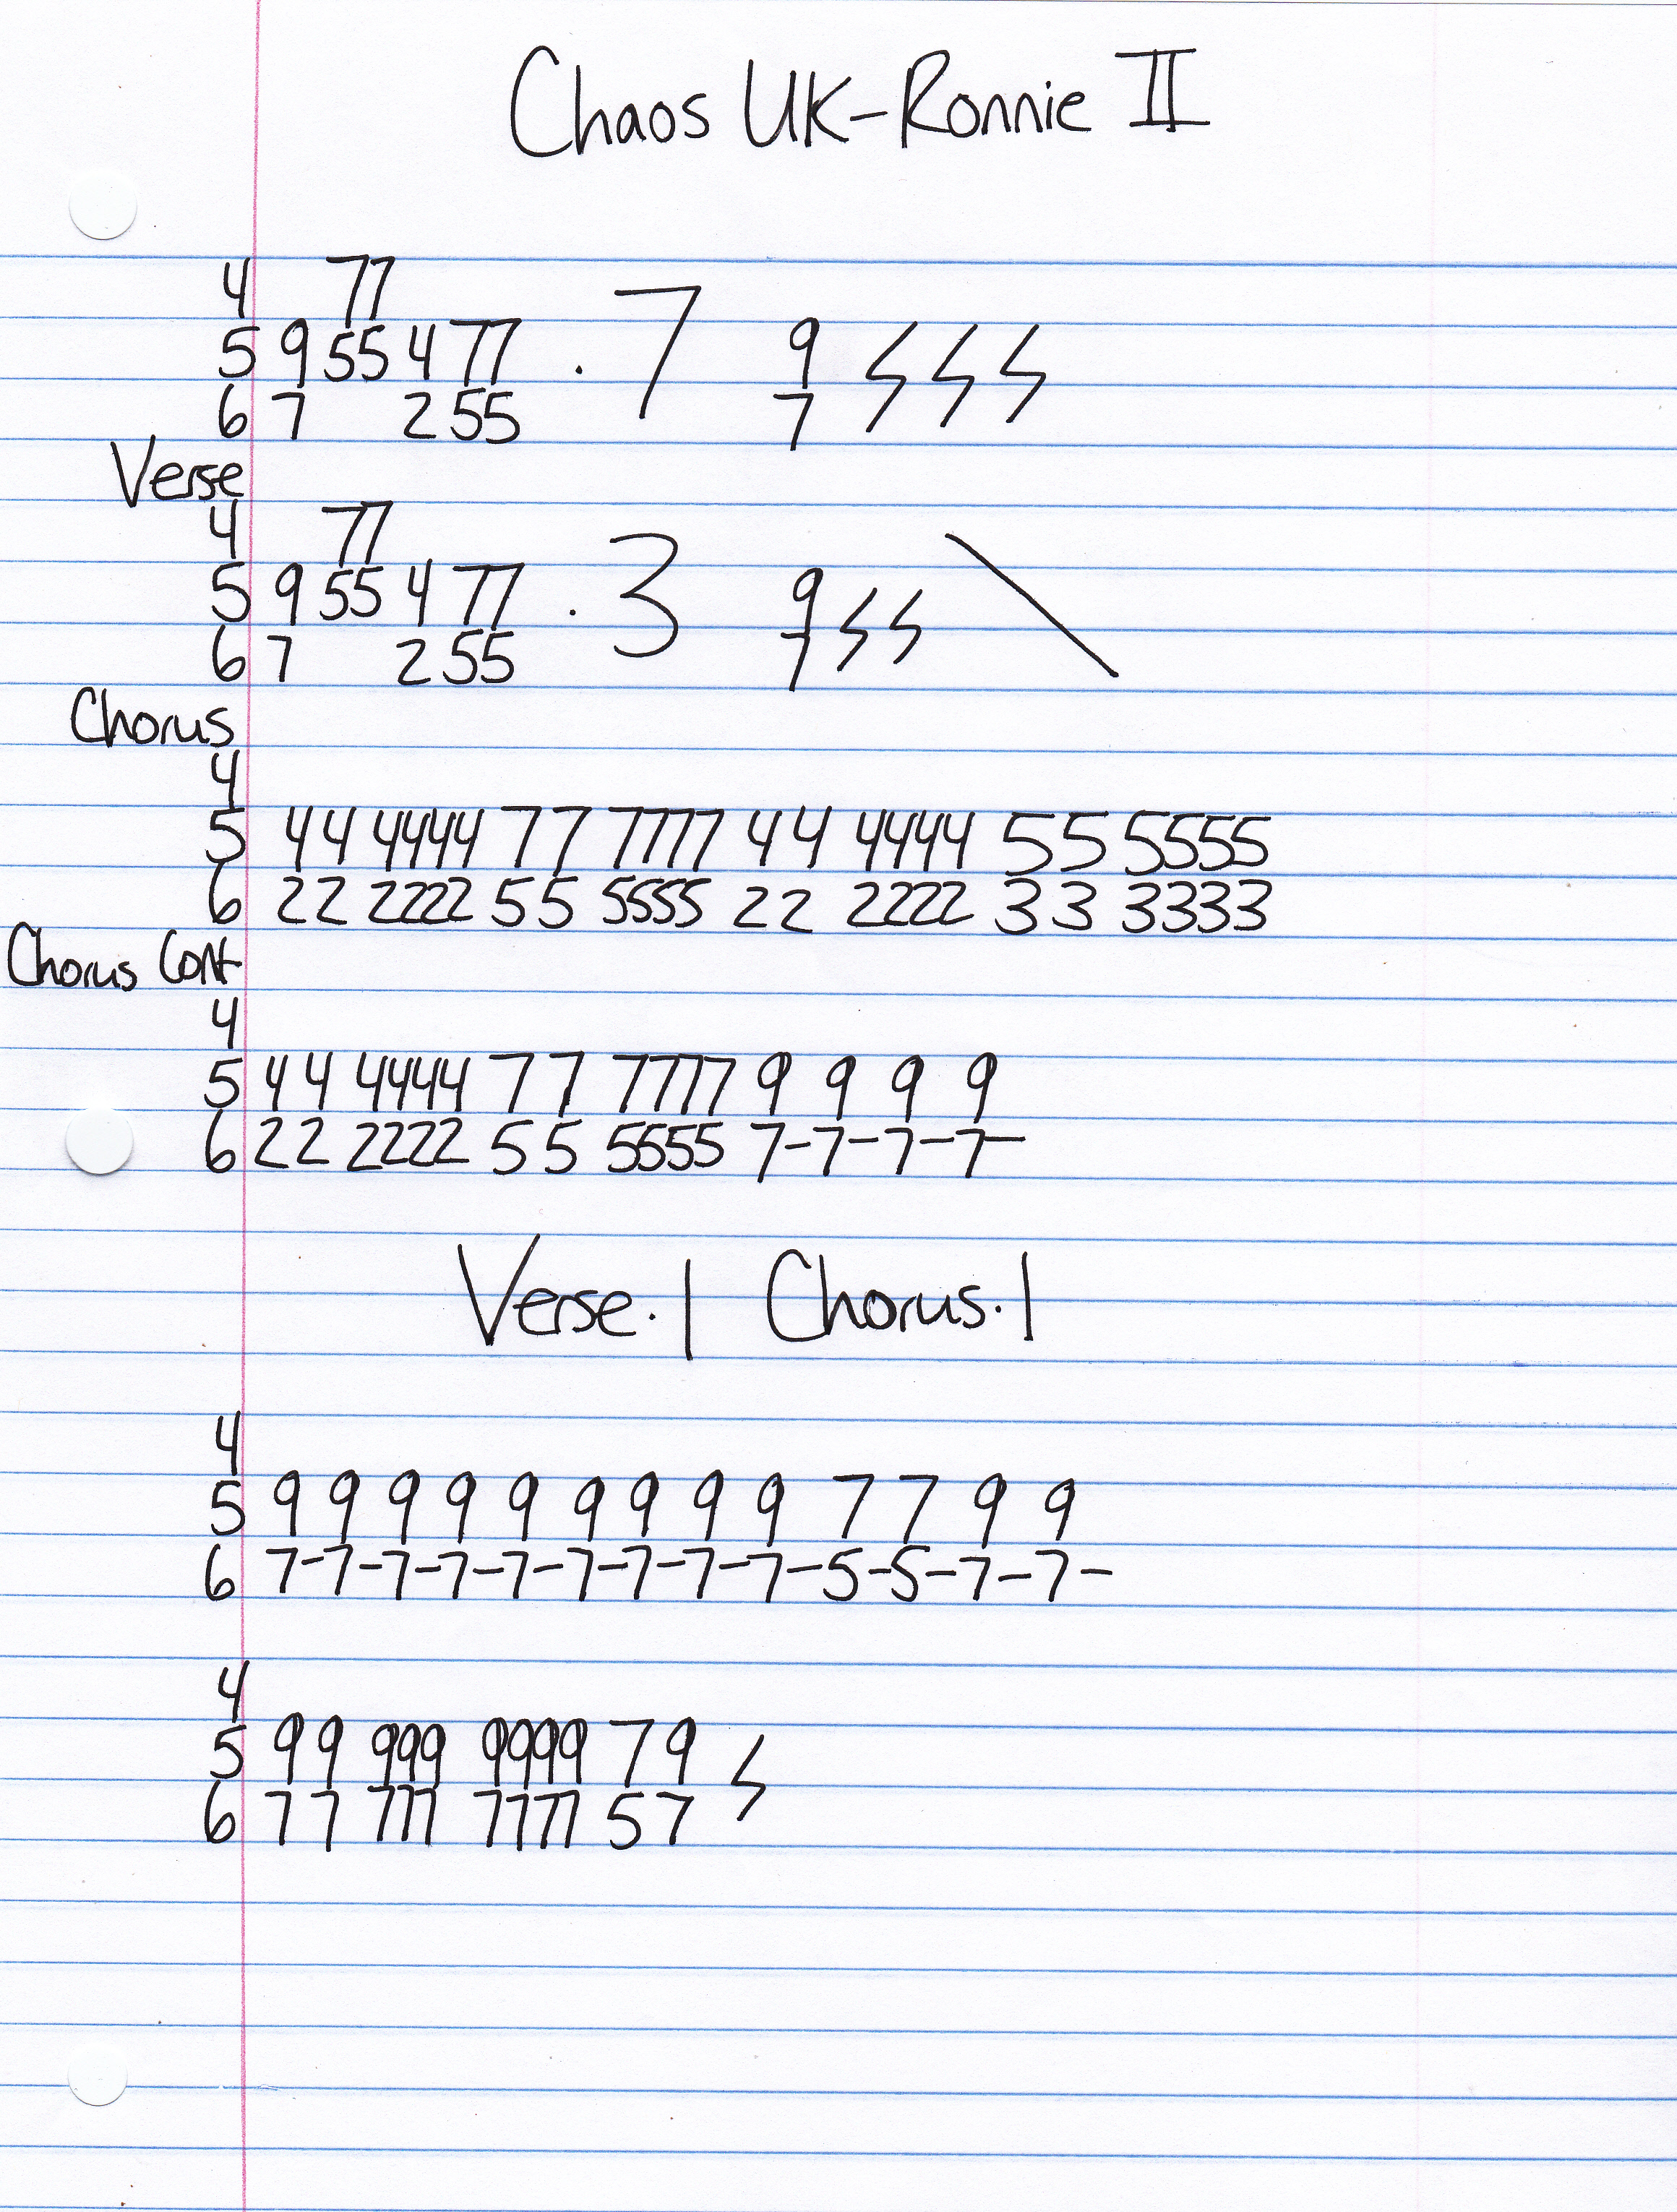 Chaos UK-Ronnie II
4 77
5 9 55 4 77 . 7 9
6 7 2 55 7
Verse
4 77
5 9 55 4 77 . 3 9
6 7 2 55 7
Chorus
4
5 44 4444 77 7777 44 4444 55 5555
6 22 2222 55 5555 22 2222 33 3333
Chorus Cont
4
5 44 4444 77 7777 9 9 9 9
6 22 2222 55 5555 7-7-7-7-
Verse.1 Chorus.1
4
5 9 9 9 9 9 9 9 9 9 7 7 9 9
6 7-7-7-7-7-7-7-7-7-5-5-7-7-
4
5 99 999 9999 79
6 77 777 7777 57